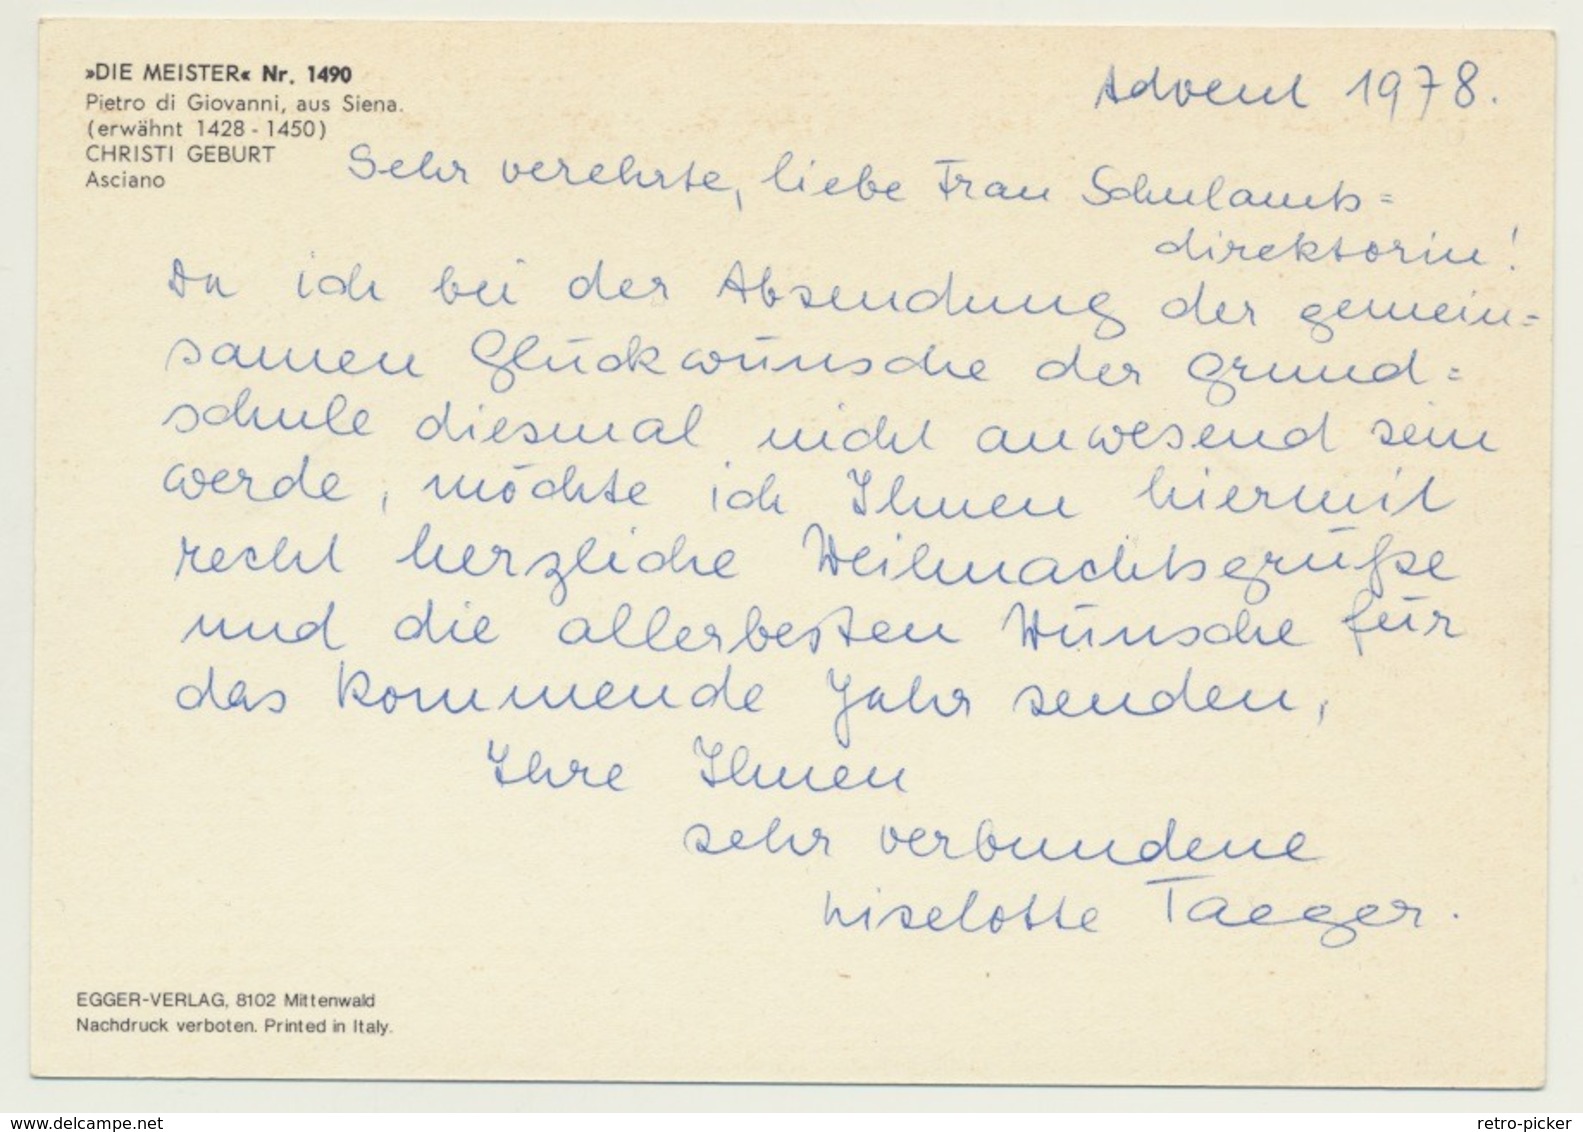 »DIE MEISTER« Nr. 1490
Pietro di Giovanni, aus Siena.
(erwähnt 1428 - 1450)
CHRISTI GEBURT
Asciano
Advent 1978.
Sehr verehrte, liebe Frau Schulamts=
direktorin!
Da ich bei der Absendung der gemein=
samen Glückwünsche der Grund=
schule diesmal nicht anwesend sein
werde, möchte ich Ihnen hiermit
recht herzliche Weihnachtsgrüße
und die allerbesten Wünsche für
das kommende Jahr senden,
Ihre Ihnen
sehr verbundene
Liselotte Taeger.
EGGER-VERLAG, 8102 Mittenwald
Nachdruck verboten. Printed in Italy.
www.delcampe.net
retro-picker